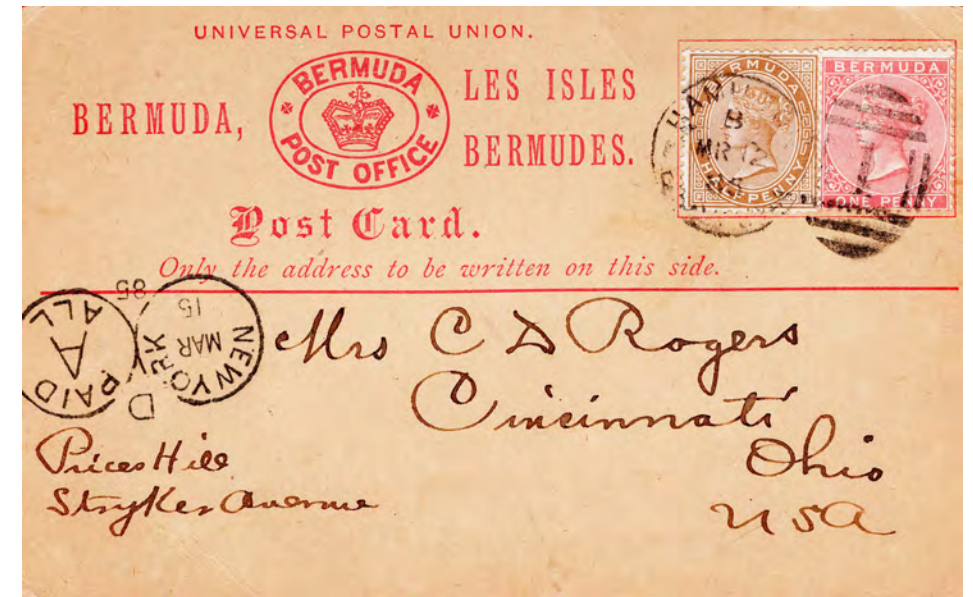 UNIVERSAL POSTAL UNION.
BERMUDA,
BERMUDA
POST OFFICE
LES ISLES
BERMUDES.
Post Card.
Only the address to be written on this side.
BERMUDA
HALFPENNY
BERMUDA
ONE PENNY
B
MR 12
1
NEW YORK
MAR
15
85
D
PAID
A
ALL
Mrs C D Rogers
Cincinnati
Ohio
USA
Prices Hill
Stryker Avenue